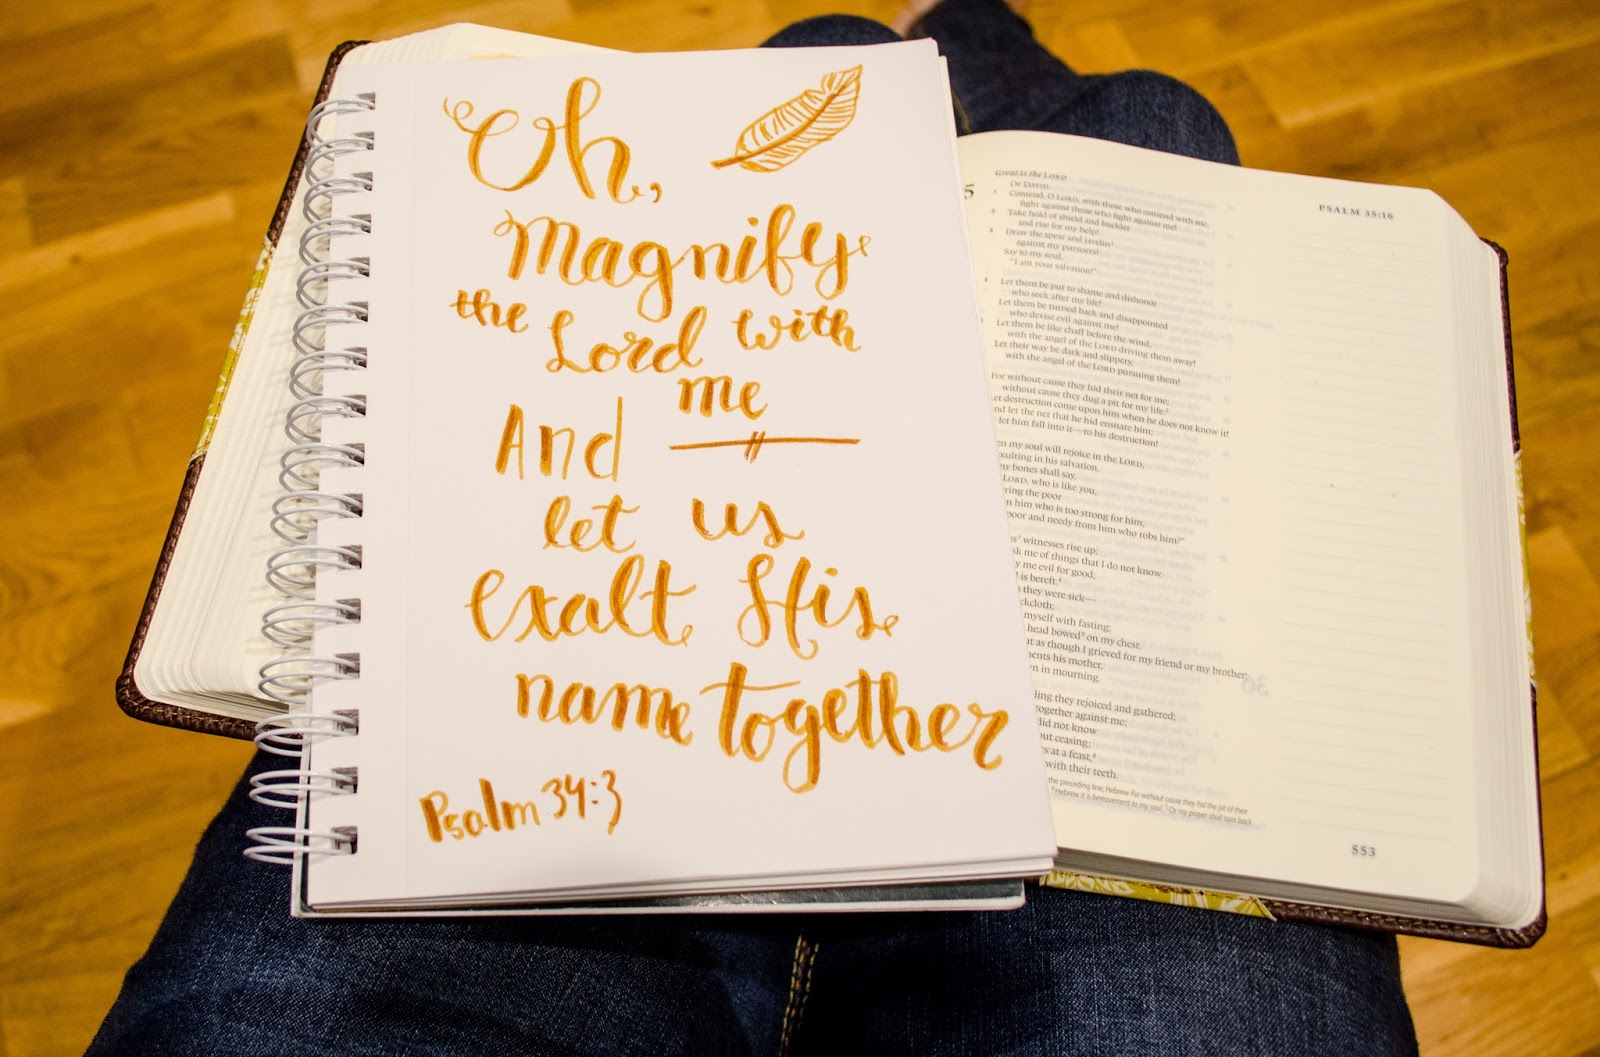 Oh,
magnify
the Lord with
me
And
let us
exalt His
name together
Psalm 34:3
Great Is the LORD
PSALM 35:16
5
OF DAVID.
Contend, O LORD, with those who contend with me;
fight against those who fight against me!
Take hold of shield and buckler
and rise for my help!
Draw the spear and javelin
against my pursuers!
Say to my soul,
"I am your salvation!"
Let them be put to shame and dishonor
who seek after my life!
Let them be turned back and disappointed
who devise evil against me!
Let them be like chaff before the wind,
with the angel of the LORD driving them away!
Let their way be dark and slippery,
with the angel of the LORD pursuing them!
For without cause they hid their net for me;
without cause they dug a pit for my life.
Let destruction come upon him when he does not know it!
And let the net that he hid ensnare him;
let him fall into it—to his destruction!
my soul will rejoice in the LORD,
exulting in his salvation.
my bones shall say,
LORD, who is like you,
the poor
him who is too strong for him,
poor and needy from him who robs him?"
witnesses rise up;
me of things that I do not know.
me evil for good;
is bereft.
they were sick—
myself with fasting;
head bowed on my chest.
as though I grieved for my friend or my brother;
his mother,
in mourning.
they rejoiced and gathered;
together against me;
did not know
ceasing;
at a feast,
with their teeth.
the preceding line; Hebrew For without cause they hid the pit of their
Hebrew it is bereavement to my soul 5 Or my prayer shall turn back
553